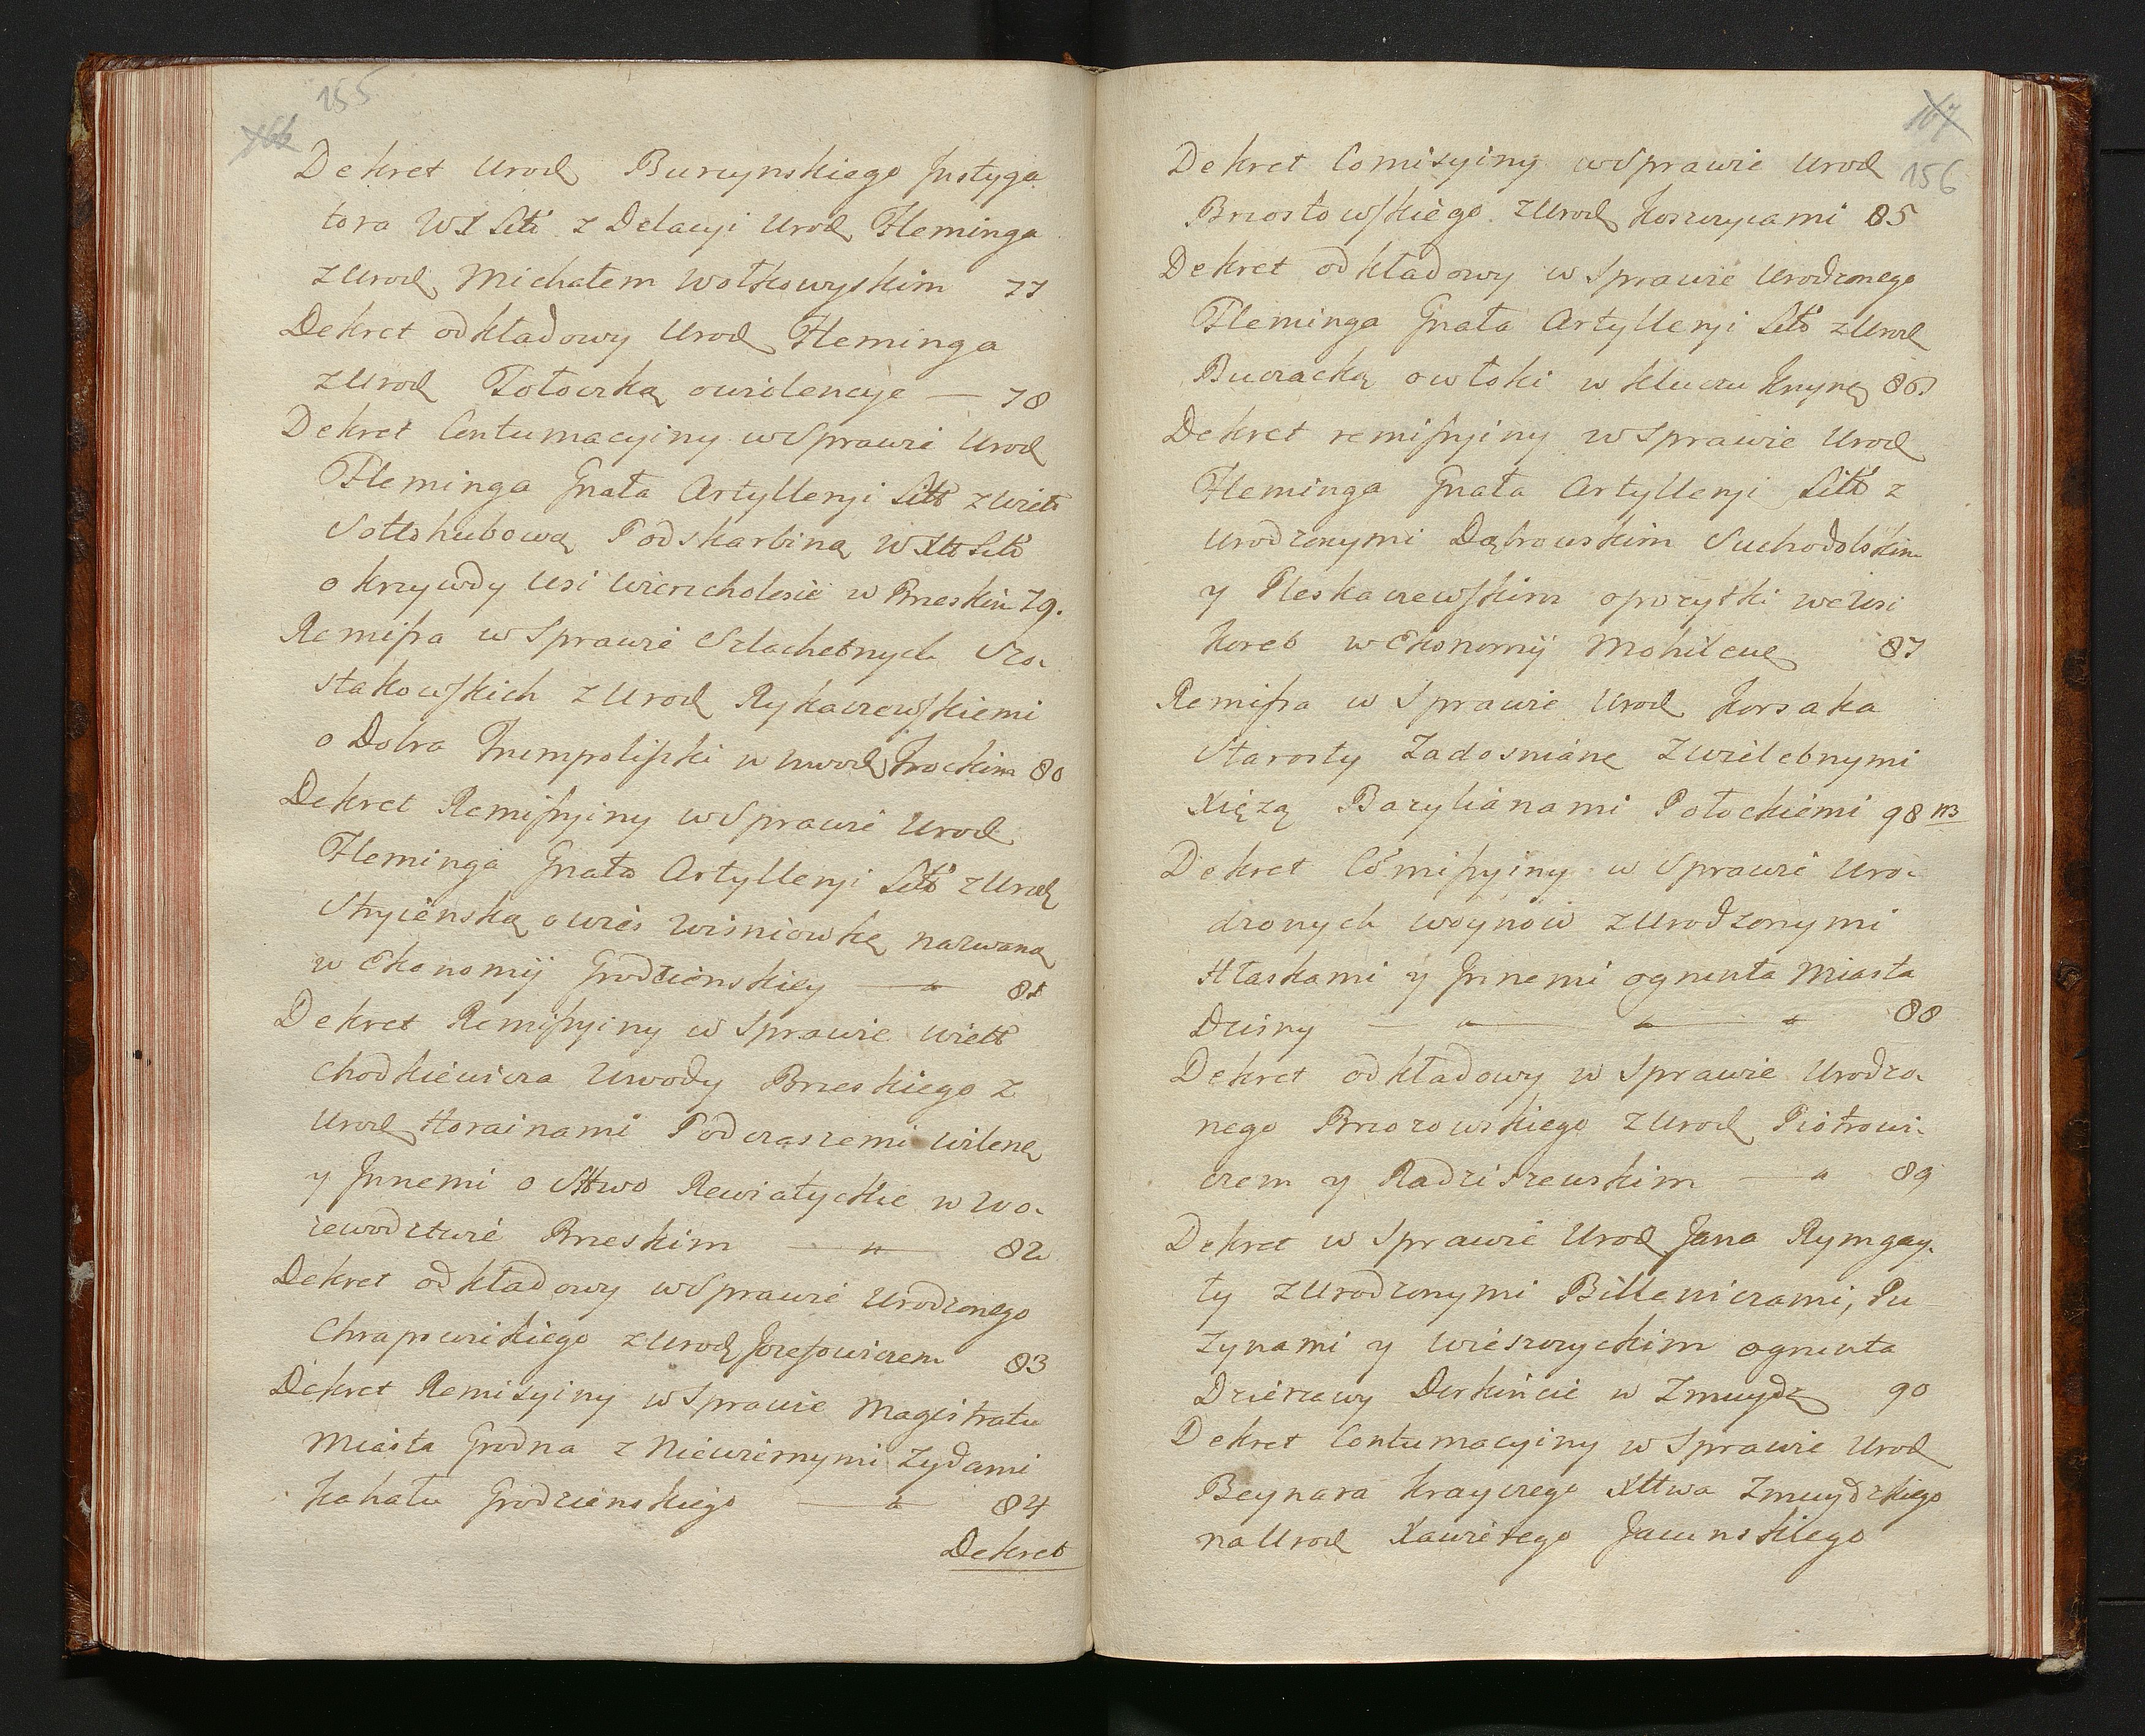 155
166
Dekret Urod Burzynskiego Instyga
tora WX Litt z Delacyi Urod Fleminga
z Urod Michałem Wołkowyskim 77
Dekret odkładowy Urod Fleminga
z Urod Potocką owiolencye — 78
Dekret Contumacyiny w Sprawie Urod
Fleminga Gnała Artylleryi Litt z Wielt
Sołłohubową Podskarbiną W Litt
o krzywdy wsi Wierzcholesie w Brzeskim 79.
Remissa w Sprawie Szlachetnych Szo-
stakowskich z Urod Rykaczewskiemi
o Dobra Trumpoliszki w Uwod Trockim 80
Dekret Remissyiny w Sprawie Urod
Fleminga Gnała Artylleryi Litt z Urod
Stryienską o wieś Wiśniowkę nazwaną
w Ekonomij Grodzienskiey — " 81
Dekret Remissyiny w Sprawie Wielt
Chodkiewicza Uwody Brzeskiego z
Urod Horainami Podczaszemi Wilenę
y Jnnemi o Sttwo Rewiatyckie w Wo-
iewodztwie Brzeskim — " — 82
Dekret odkładowy w Sprawie Urodzonego
Chrapowickiego z Urod Jozefowiczem 83
Dekret Remisyiny w Sprawie Magistratu
Miasta Grodna z Niewiernymi Zydami
Kahału Grodzienskiego — " — 84
Dekret
167
156
Dekret Comisyiny w Sprawie Urod
Brzostowskiego z Urod Koszczycami 85
Dekret odkładowy w Sprawie Urodzonego
Fleminga Gnała Artylleryi Litt z Urod
Buczacką o włoki w kluczu Knyny 86
Dekret remissyiny w Sprawie Urod
Fleminga Gnała Artylleryi Litt z
Urodzonymi Dąbrowskim Suchodolskim
y Pleskaczewskim o pozytki we Wsi
Koreb w Ekonomij Mohilewę 87
Remissa w Sprawie Urod Korsaka
Starosty Zadosniane z Wielebnymi
Xiężą Bazylianami Połockiemi 98 NB
Dekret Comissyiny w Sprawie Uro-
dzonych Woynow z Urodzonymi
Hłaskami y Jnnemi o grunta Miasta
Dzisny — " — " — " 88
Dekret odkładowy w Sprawie Urodzo-
nego Brzozowskiego z Urod Piotrowi-
czem y Radziszewskim — " 89
Dekret w Sprawie Urod Jana Rymgay-
ły z Urodzonymi Billewiczami, Pu-
zynami y Wieszczyckim o grunta
Dzierzawy Derkińcie w Zmuydz 90
Dekret Contumacyiny w Sprawie Urod
Beynara Krayczego Xttwa Zmuydzkiego
na Urod Xawierego Jacunskiego